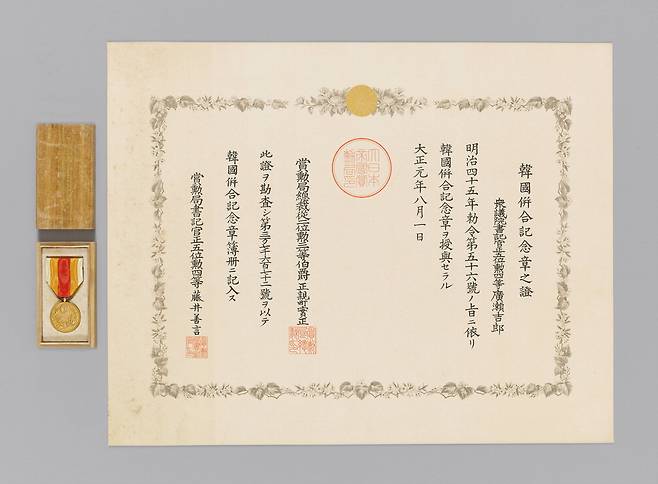 韓國併合記念章之證
衆議院書記官正五位勲四等廣瀬吉郎
明治四十五年勅令第五十六號ノ上旨ニ依リ
韓國併合記念章ヲ授與セラル
大正元年八月一日
大日本
賞勲局總裁從二位勲二等伯爵正親町實正
此證ヲ勘査シ第三万千六百二十二號ヲ以テ
韓國併合記念章簿冊ニ記入ス
賞勲局書記官正五位勲四等藤井善言